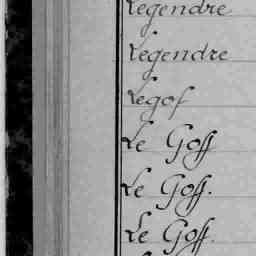 Legendre
Legendre
Legof
Le Goff
Le Goff.
Le Goff.